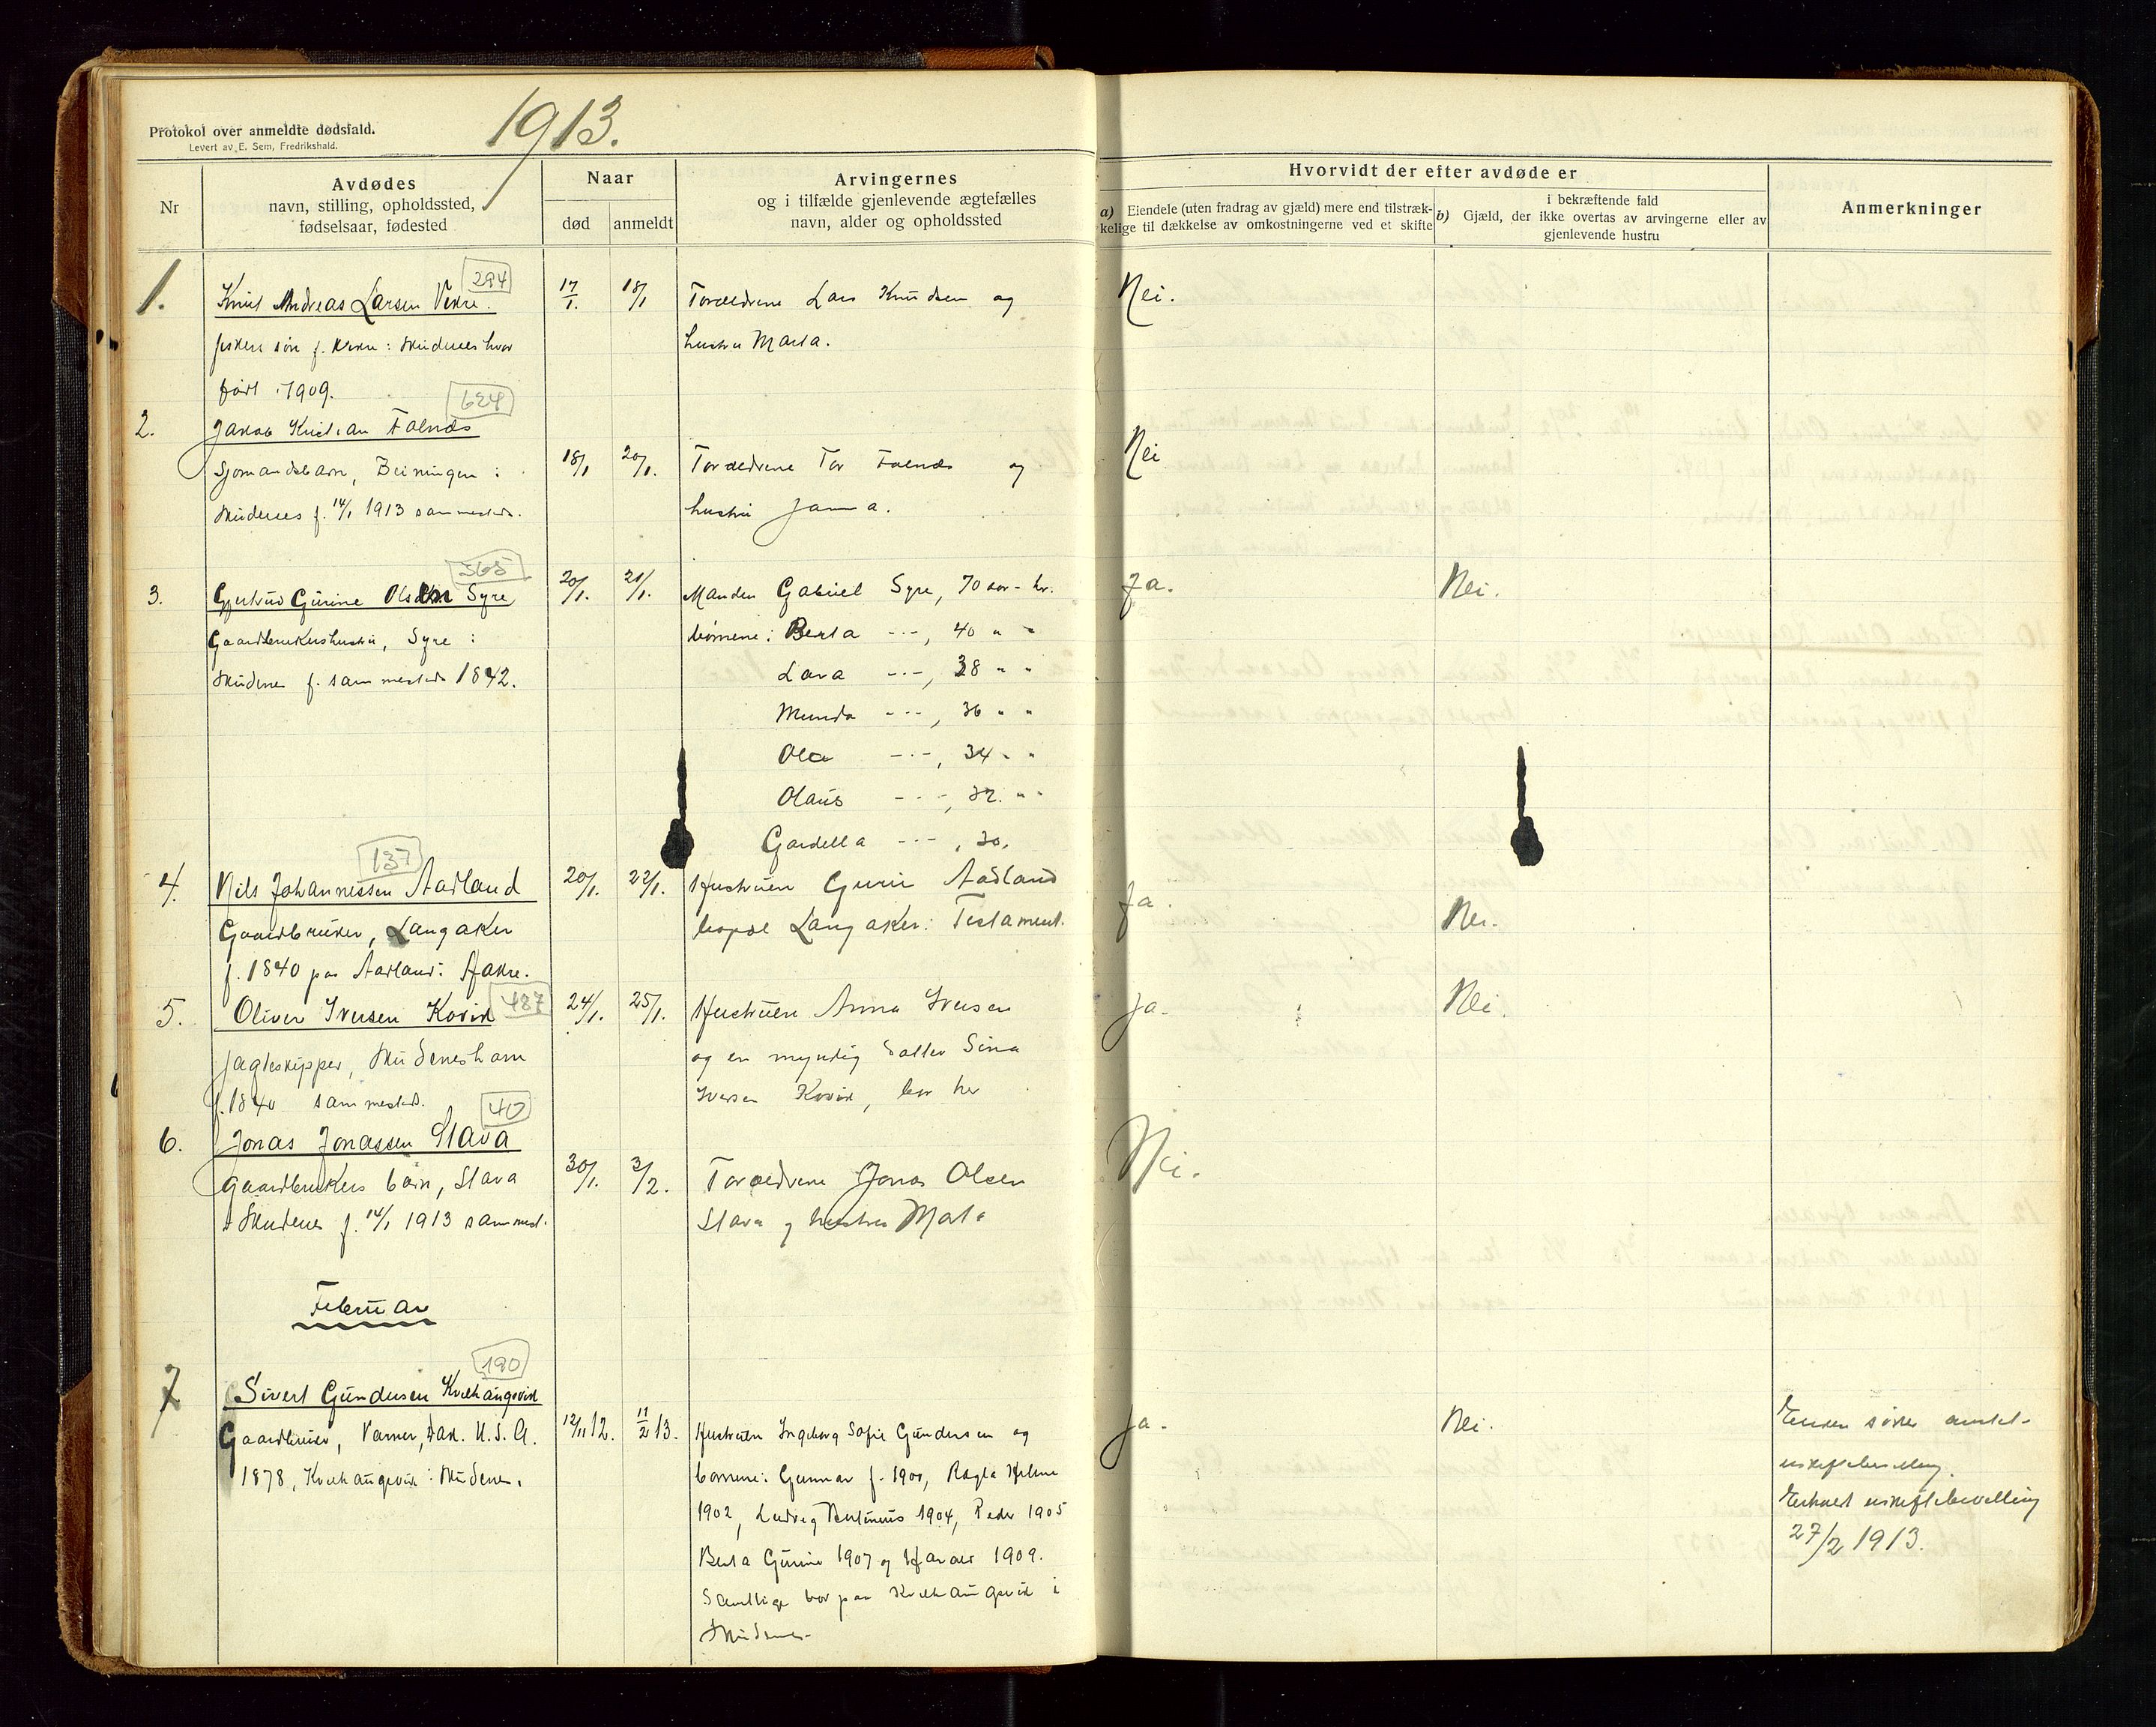 Protokol over anmeldte dødsfald.
Levert av E. Sem, Fredrikshald.
1913.
Nr
Avdødes
navn, stilling, opholdssted,
fødselsaar, fødested
Naar
død
anmeldt
Arvingernes
og i tilfælde gjenlevende ægtefælles
navn, alder og opholdssted
Hvorvidt der efter avdøde er
a) Eiendele (uten fradrag av gjæld) mere end tilstræk-
kelige til dækkelse av omkostningerne ved et skifte
b) i bekræftende fald
Gjæld, der ikke overtas av arvingerne eller av
gjenlevende hustru
Anmerkninger
294
1. Knut Andreas Larsen Vikre. 17/1. 18/1 Foraeldrene Lars Knudsen og Nei.
fiskers søn f. Vikre i Skudenes hvor hustru Marta.
født i 1909.
624
2. Jakob Kristian Falnæs
Sjømandsbarn, Beiningen i 18/1 20/1. Foraeldrene Tor Falnæs og Nei
Skudenes f. 14/1 1913 sammesteds. hustru Janna.
565
3. Gjertrud Gurine Olsen Syre 20/1. 21/1. Manden Gabriel Syre, 70 aar - her. Ja. Nei.
Gaardbrukershustru, Syre i børnene: Berta -·-, 40 " "
Skudenes f. sammesteds 1842. Lava -·-, 38 " "
Munda -·-, 36 " "
Ola -·-, 34 " "
Olaus -·-, 32. " "
Gardella -·-, 30.
137
4. Nils Johannessen Aadland 20/1. 22/1. Hustruen Guri Aadland Ja.
Gaardbruker, Langaker bopæl Langaker. Testament. Nei.
f. 1840 paa Aadland i Aakre.
5. Oliver Iversen Kovik 487 24/1. 25/1. Hustruen Anna Iversen Ja. Nei.
Jagteskipper, Skudeneshavn og en myndig datter Sina
f. 1840 sammesteds. Iversen Kovik, bor her
40
6. Jonas Jonassen Stava
Gaardbrukers barn, Stava 30/1. 3/2. Foraeldrene Jonas Olsen Nei.
i Skudenes f. 14/1 1913 sammest. Stava og hustru Marta
Februar
190
7 Sivert Gundersen Kvilhaugsvik
Gaardbruker, Varner, Dak. U.S.A. 12/11 12. 11/2 13. Hustruen Ingeborg Sofie Gundersen og Ja. Nei. Enken søker amtet
1878, Kvilhaugsvik i Skudenes. børnene: Gunnar f. 1900, Helene
uskiftebevilling.
1902, Ludvig 1904, Peder 1905 Erholdt uskiftebevilling
27/2 1913.
Berta Gurine 1907 og Harald 1909.
Samtlige bor paa Kvilhaugsvik i
Skudenes